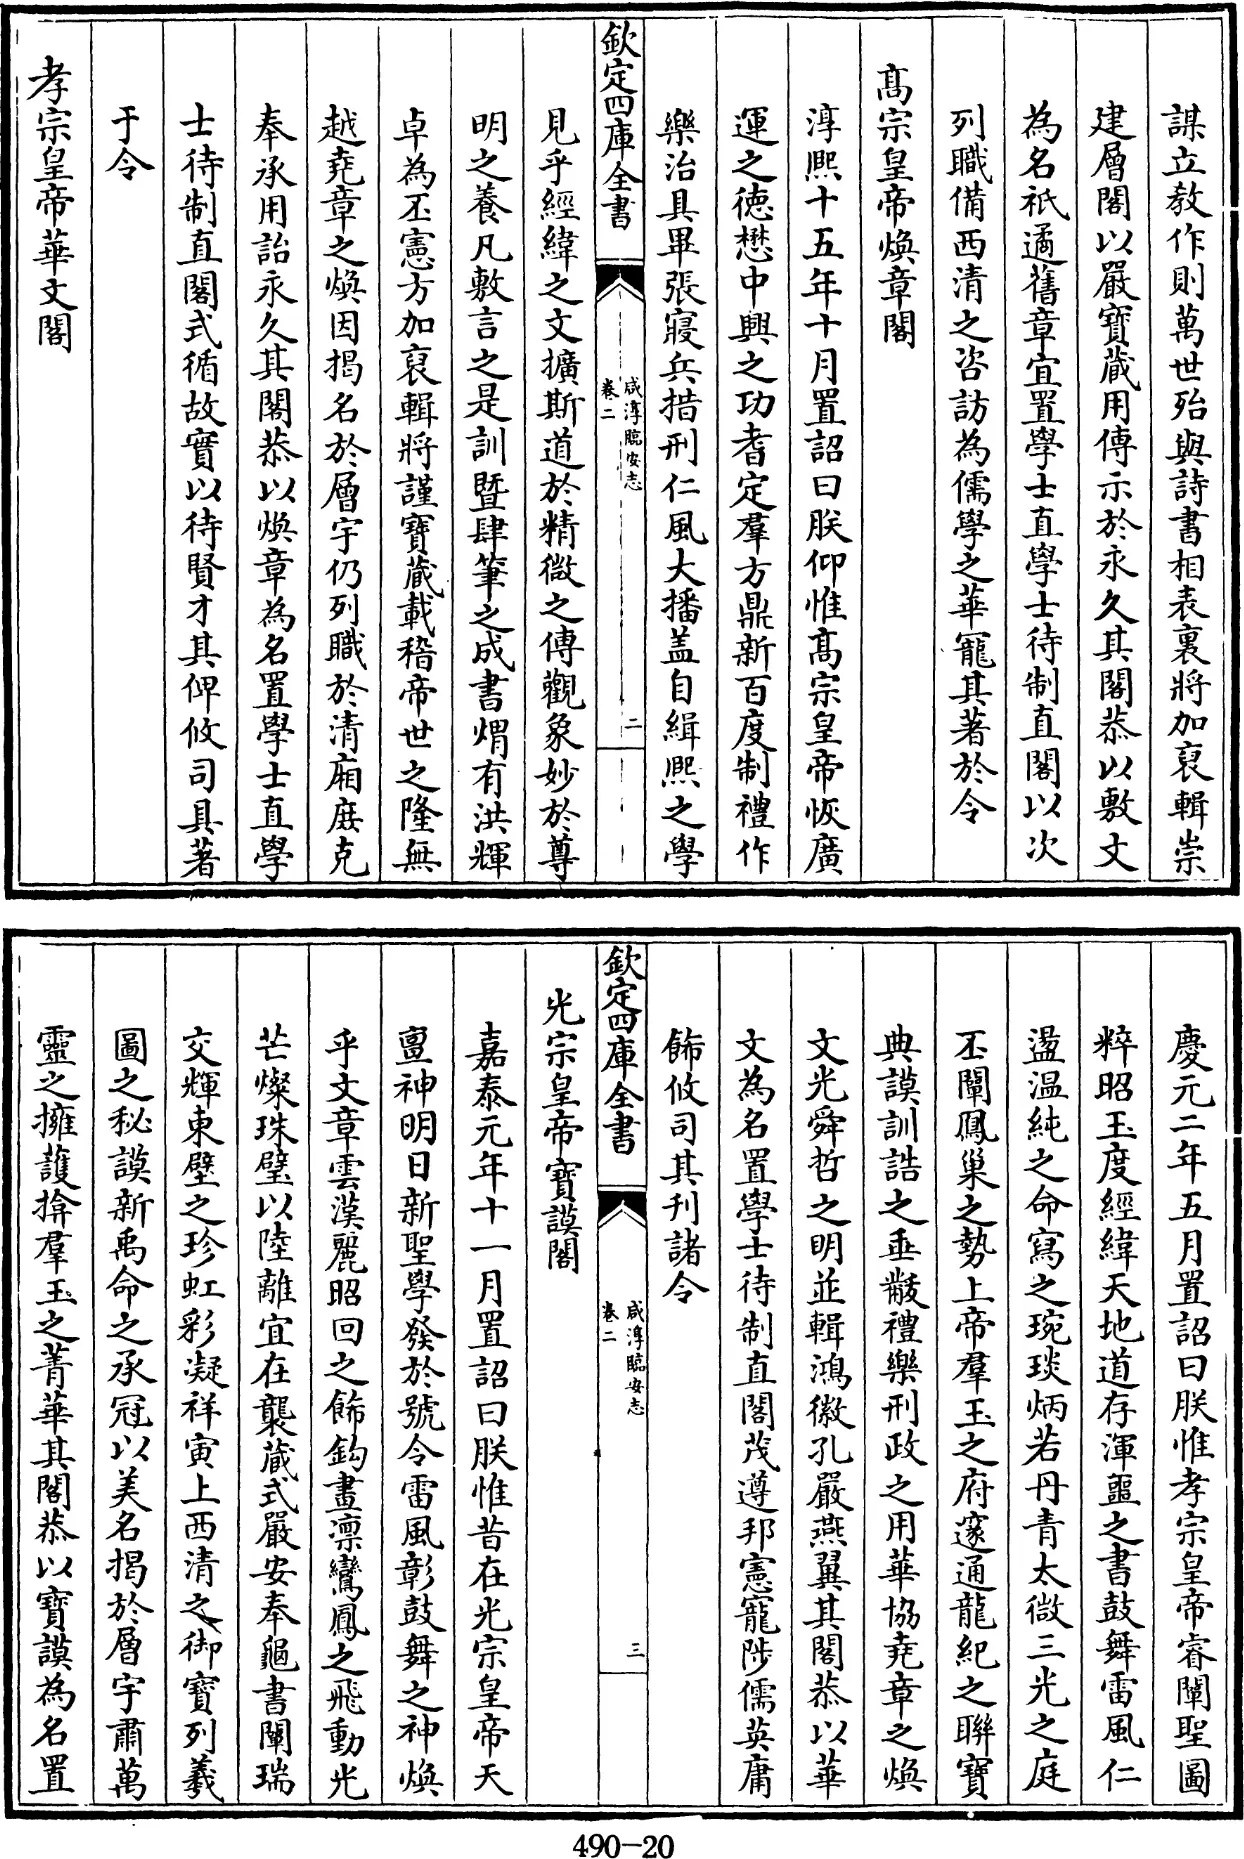 謀立教作則萬世殆與詩書相表裏將加裒輯崇
建層閣以嚴寶蔵用傳示於永久其閣恭以敷文
為名祇遹舊章宜置學士直學士待制直閣以次
列職備西清之咨訪為儒學之華寵其著於令
髙宗皇帝煥章閣
淳熙十五年十月置詔曰朕仰惟髙宗皇帝恢廣
運之徳懋中興之功耆定羣方鼎新百度制禮作
樂治具畢張寢兵措刑仁風大播盖自緝熙之學
欽定四庫全書
咸淳臨安志
卷二
二
見乎經緯之文擴斯道於精微之傳觀象妙於尊
明之養凡敷言之是訓暨肆筆之成書煟有洪輝
卓為丕憲方加裒輯將謹寶蔵載稽帝世之隆無
越堯章之煥因揭名於層宇仍列職於清廂庻克
奉承用詒永久其閣恭以煥章為名置學士直學
士待制直閣式循故實以待賢才其俾攸司具著
于令
孝宗皇帝華文閣
慶元二年五月置詔曰朕惟孝宗皇帝睿闡聖圖
粹昭玉度經緯天地道存渾噩之書鼓舞雷風仁
盪温純之命寫之琬琰炳若丹青太微三光之庭
丕闡鳳巢之勢上帝羣玉之府邃通龍紀之聯寶
典謨訓誥之垂黻禮樂刑政之用華協堯章之煥
文光舜哲之明並輯鴻徽孔嚴燕翼其閣恭以華
文為名置學士待制直閣茂遵邦憲寵陟儒英庸
飾攸司其刋諸令
欽定四庫全書
咸淳臨安志
卷二
三
光宗皇帝寶謨閣
嘉泰元年十一月置詔曰朕惟昔在光宗皇帝天
亶神明日新聖學發於號令雷風彰鼓舞之神煥
乎文章雲漢麗昭回之飾鈎畫凛鸞鳳之飛動光
芒燦珠璧以陸離宜在襲蔵式嚴安奉龜書闡瑞
交輝東壁之珍虹彩凝祥寅上西清之御寶列羲
圖之秘謨新禹命之承冠以美名揭於層宇肅萬
靈之擁護揜羣玉之菁華其閣恭以寶謨為名置
490-20